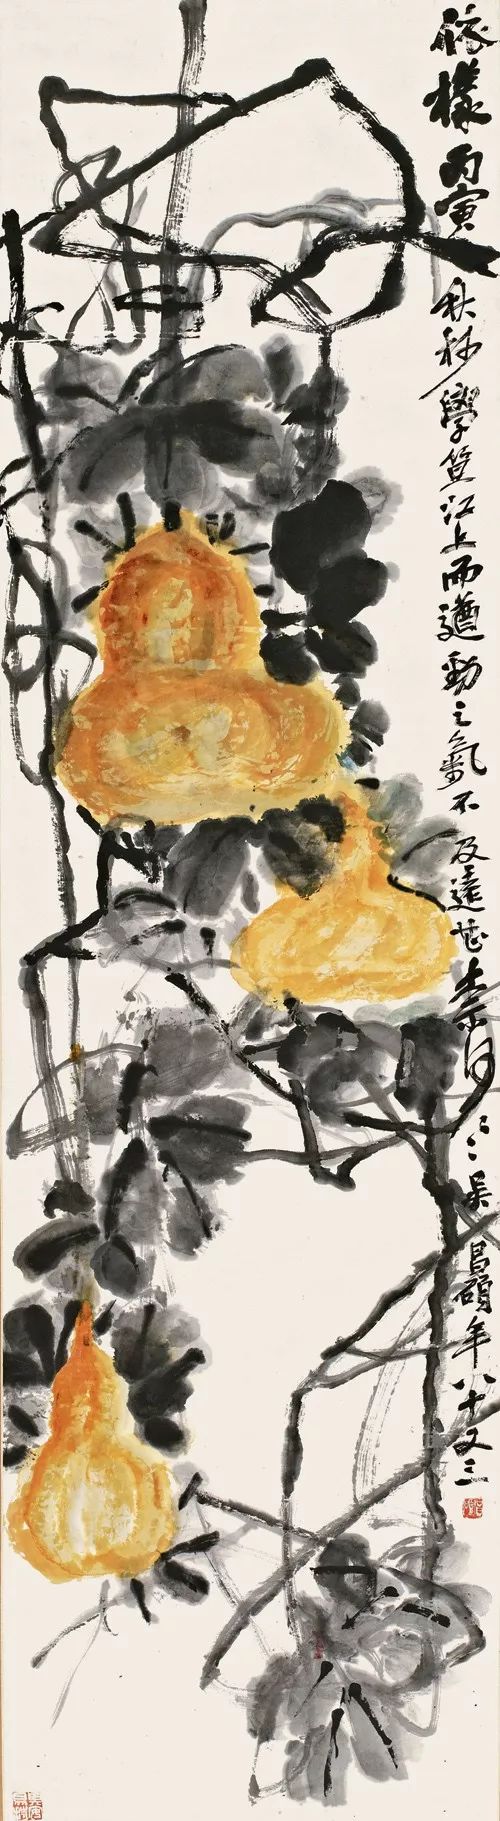 依樣 丙寅秋杪學笪江上而遒勁之氣不及遠甚奈何〻〻吳昌碩年八十又三